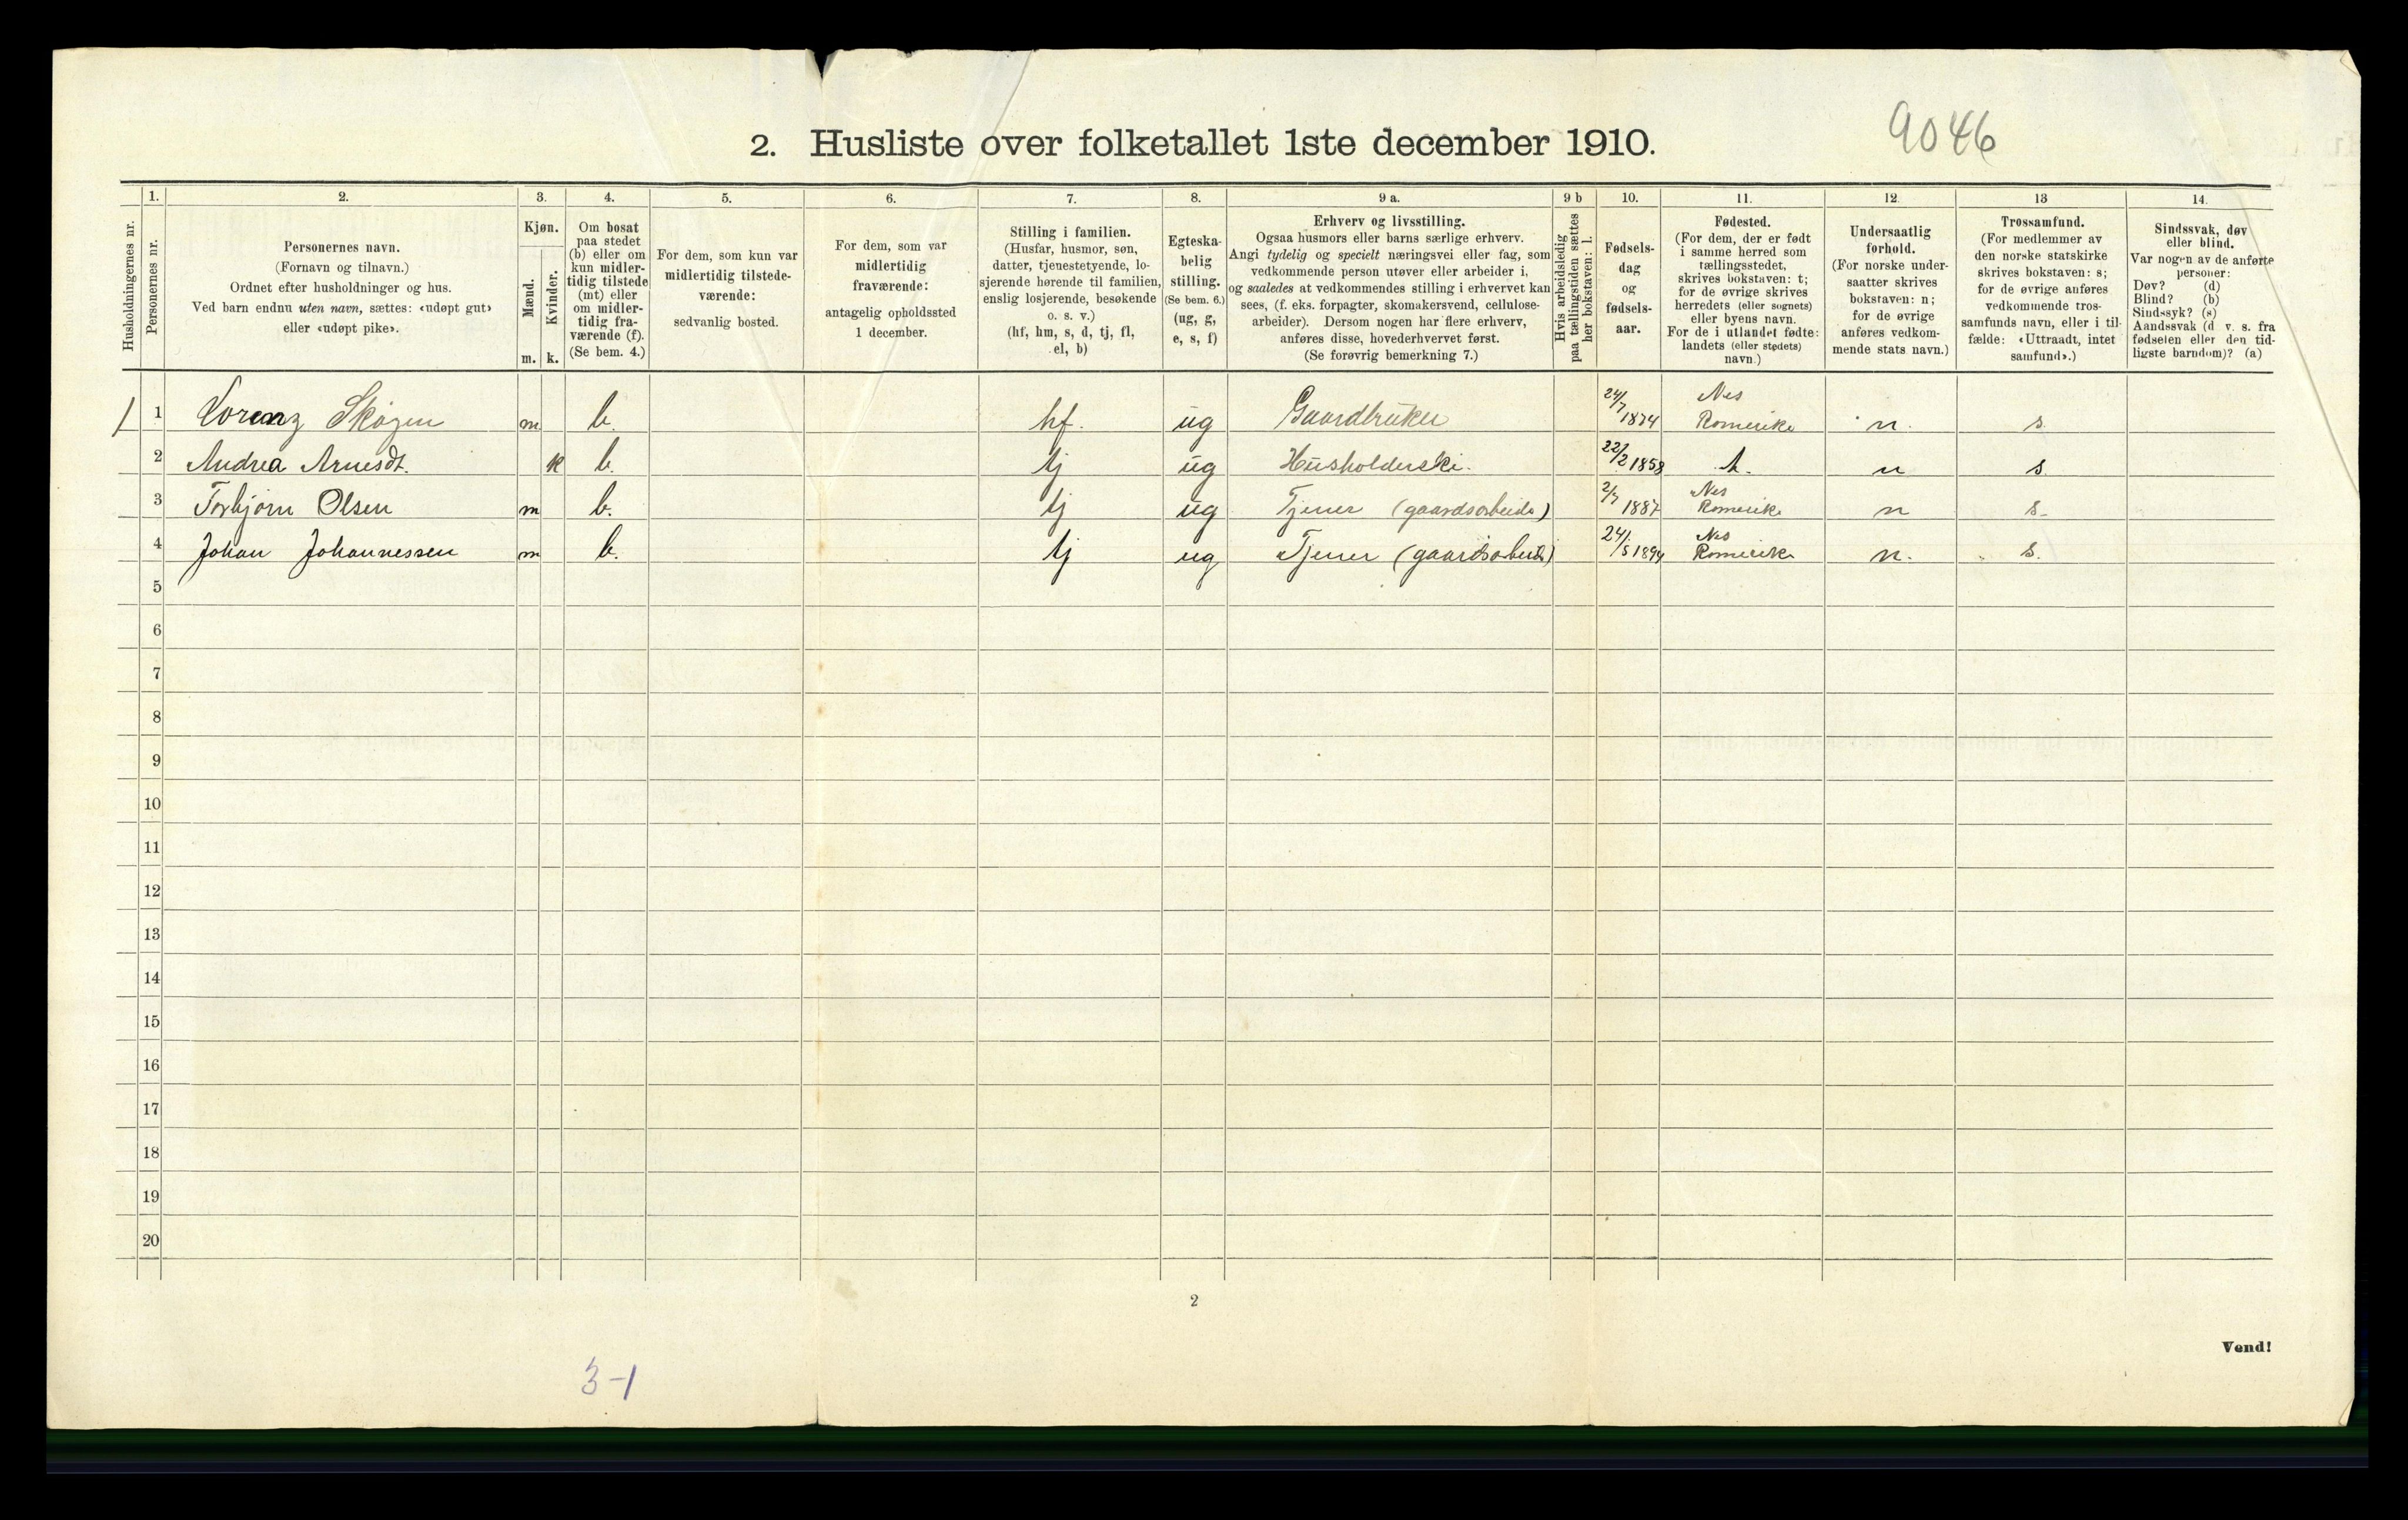 9046
2. Husliste over folketallet 1ste december 1910.
Husholdningernes nr.
1.
Personernes nr.
2.
Personernes navn.
(Fornavn og tilnavn.)
Ordnet efter husholdninger og hus.
Ved barn endnu uten navn, sættes: «udøpt gut»
eller «udøpt pike».
3.
Kjøn.
Mænd.
Kvinder.
m. k.
4.
Om bosat
paa stedet
(b) eller om
kun midler-
tidig tilstede
(mt) eller
om midler-
tidig fra-
værende (f).
(Se bem. 4.)
5.
For dem, som kun var
midlertidig tilstede-
værende:
sedvanlig bosted.
6.
For dem, som var
midlertidig
fraværende:
antagelig opholdssted
1 december.
7.
Stilling i familien.
(Husfar, husmor, søn,
datter, tjenestetyende, lo-
sjerende hørende til familien,
enslig losjerende, besøkende
o. s. v.)
(hf, hm, s, d, tj, fl,
el, b)
8.
Egteska-
belig
stilling.
(Se bem. 6.)
(ug, g,
e, s, f)
9 a.
Erhverv og livsstilling.
Ogsaa husmors eller barns særlige erhverv.
Angi tydelig og specielt næringsvei eller fag, som
vedkommende person utøver eller arbeider i,
og saaledes at vedkommendes stilling i erhvervet kan
sees, (f. eks. forpagter, skomakersvend, cellulose-
arbeider). Dersom nogen har flere erhverv,
anføres disse, hovederhvervet først.
(Se forøvrig bemerkning 7.)
9 b
Hvis arbeidsledig
paa tællingstiden sættes
her bokstaven: l.
10.
Fødsels-
dag
og
fødsels-
aar.
11.
Fødested.
(For dem, der er født
i samme herred som
tællingsstedet,
skrives bokstaven: t;
for de øvrige skrives
herredets (eller sognets)
eller byens navn.
For de i utlandet fødte:
landets (eller stedets)
navn.)
12.
Undersaatlig
forhold.
(For norske under-
saatter skrives
bokstaven: n;
for de øvrige
anføres vedkom-
mende stats navn.)
13
Trossamfund.
(For medlemmer av
den norske statskirke
skrives bokstaven: s;
for de øvrige anføres
vedkommende tros-
samfunds navn, eller i til-
fælde: «Uttraadt, intet
samfund».)
14.
Sindssvak, døv
eller blind.
Var nogen av de anførte
personer:
Døv? (d)
Blind? (b)
Sindssyk? (s)
Aandssvak (d. v. s. fra
fødselen eller den tid-
ligste barndom)? (a)
1 1 Lorenz Skogen m b. hf. ug Gaardbruker 24/7 1874 Nes Romerike n. s.
2 Andrea Arnesdt. k b. tj ug Husholderske. 22/2 1858 t. n s.
3 Torbjørn Olsen m b. tj ug Tjener (gaardsarbeide) 2/7 1887 Nes Romerike n s.
4 Johan Johannessen m b. tj ug Tjener (gaardsarbeide) 24/5 1894 Nes Romerike n. s.
5
6
7
8
9
10
11
12
13
14
15
16
17
18
19
20
2
Vend!
3-1